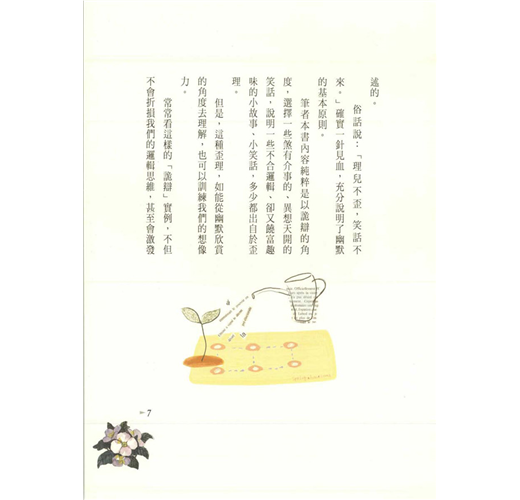 述的。
俗話說：「理兒不歪，笑話不
來。」確實一針見血，充分說明了幽默
的基本原則。
筆者本書內容純粹是以詭辯的角
度，選擇一些煞有介事的、異想天開的
笑話，說明一些不合邏輯、卻又饒富趣
味的小故事、小笑話，多少都出自於歪
理。
但是，這種歪理，如能從幽默欣賞
的角度去理解，也可以訓練我們的想像
力。
常常看這樣的「詭辯」實例，不但
不會折損我們的邏輯思維，甚至會激發
7